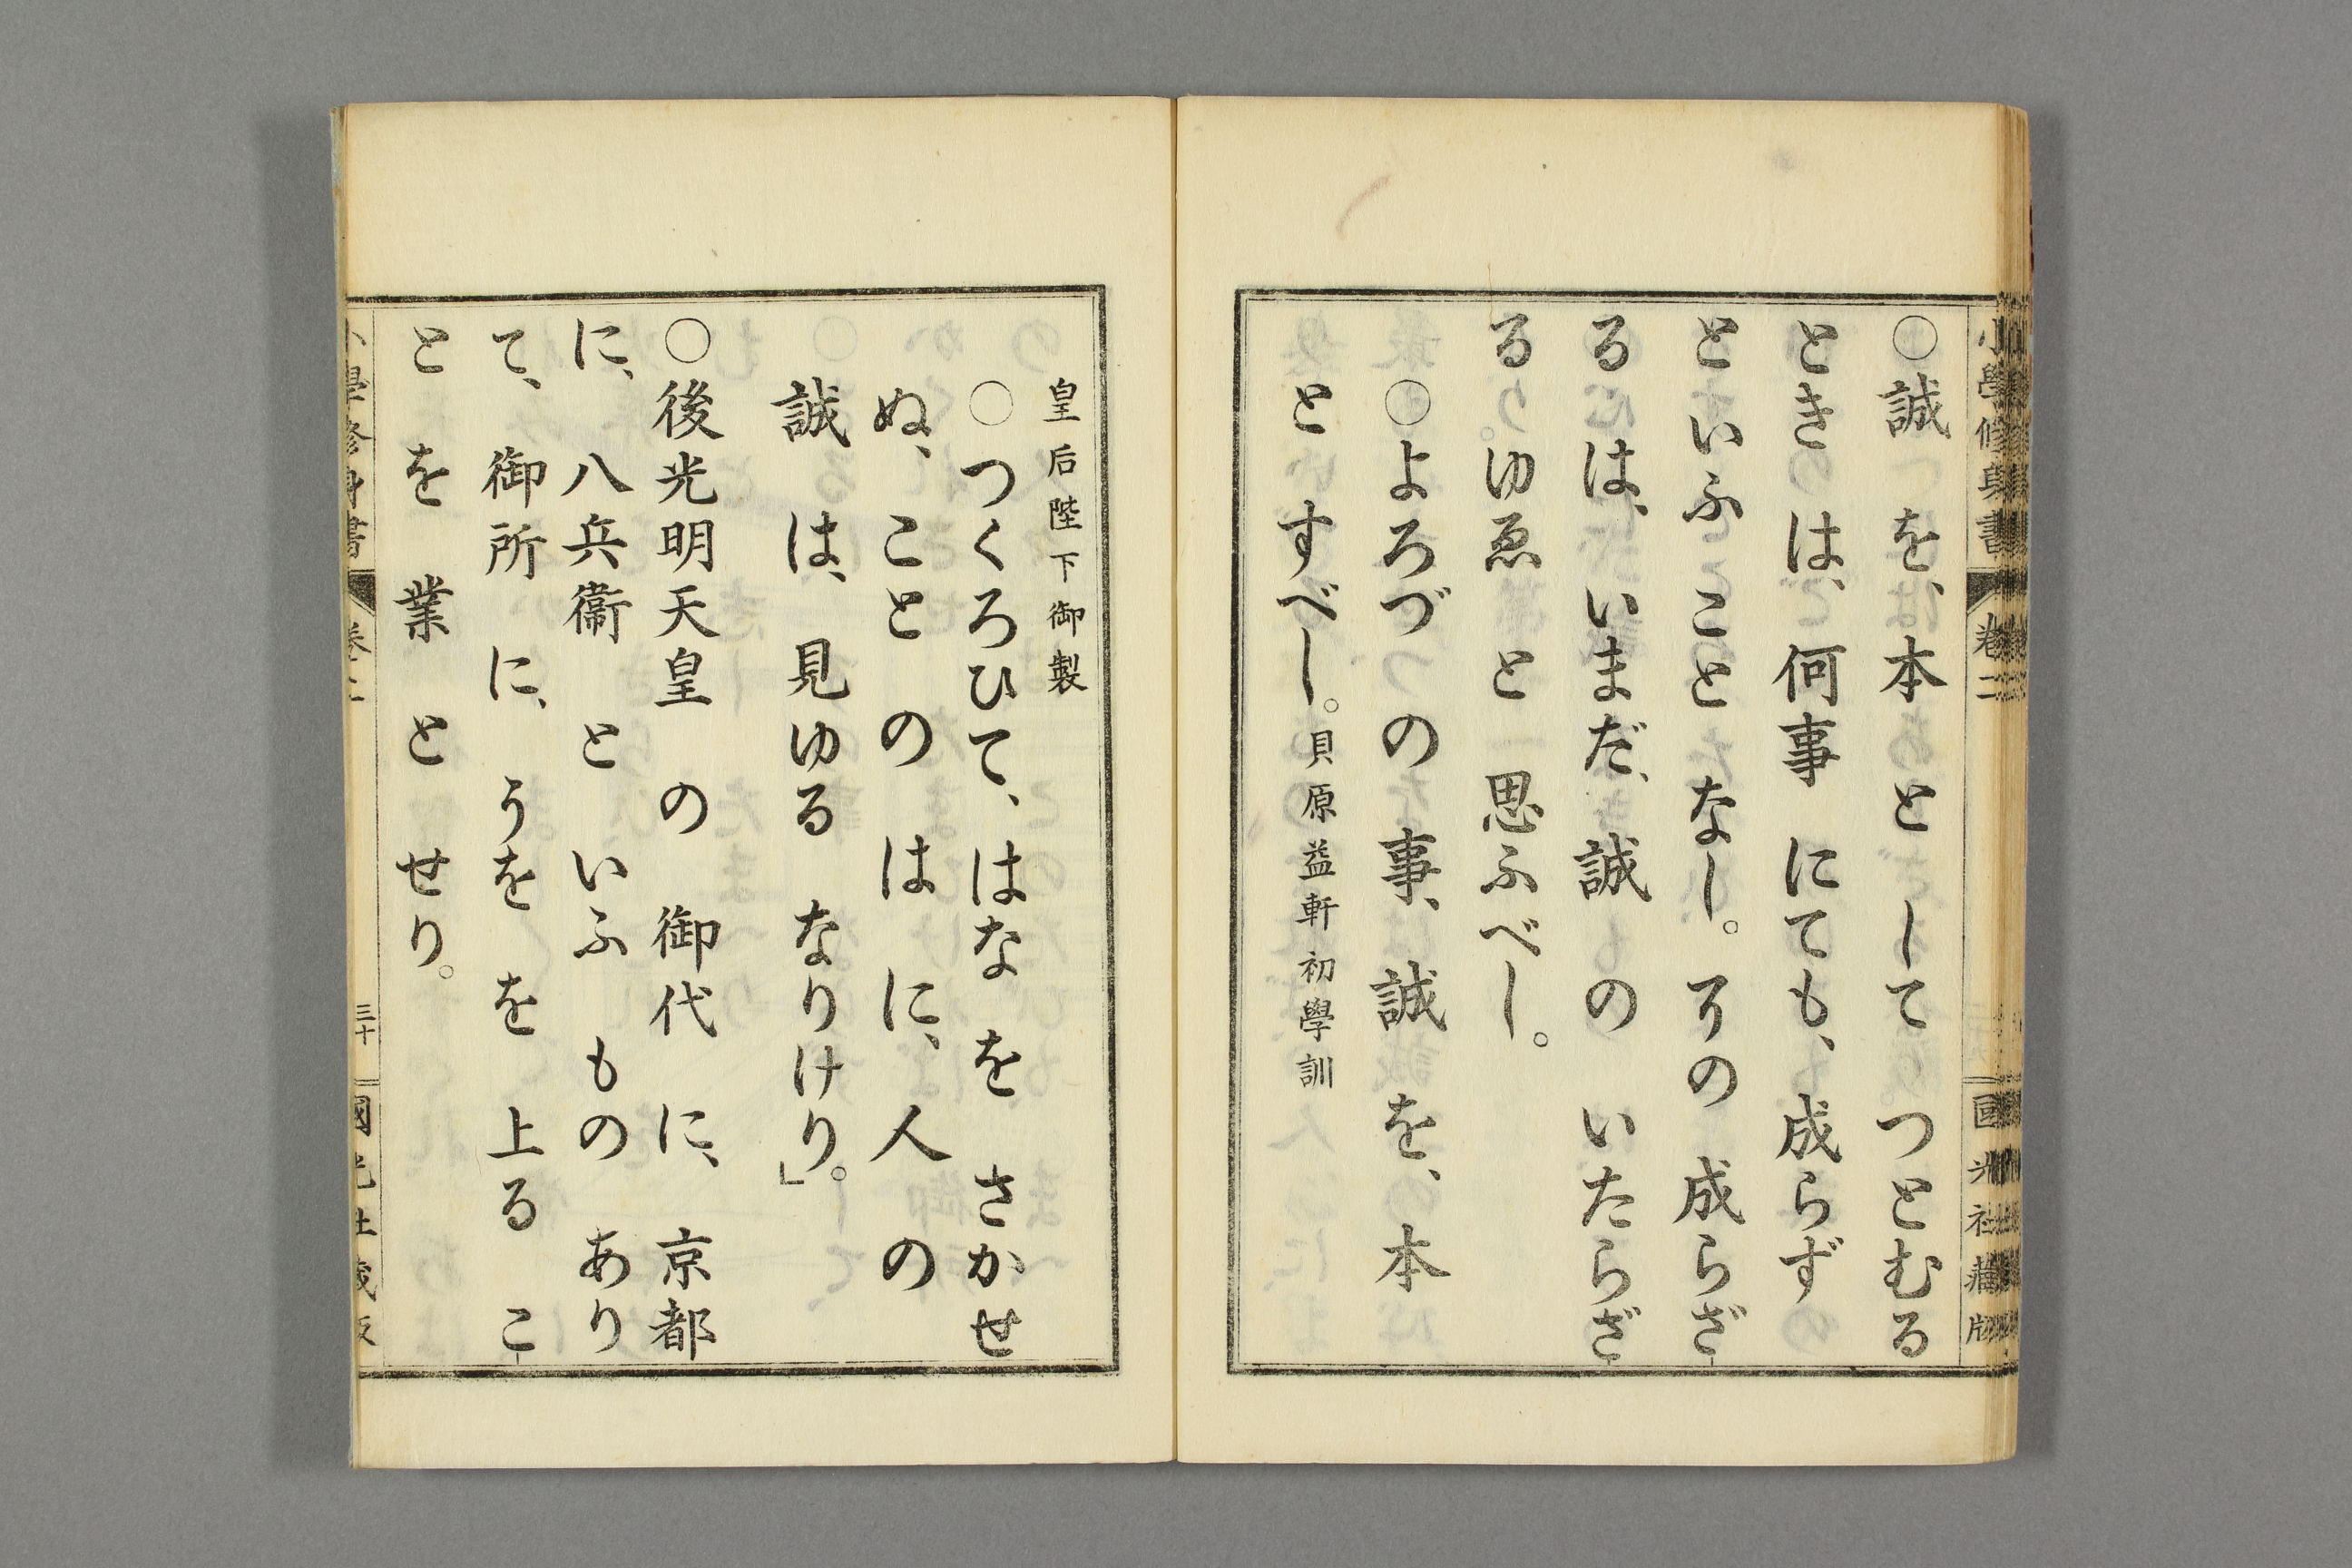 小學修身書 卷二 國光社藏版
○誠 を、本 と して つとむる
ときは、何事 にても、成らず
と いふ こと なし。その 成らざ
る は、いまだ、誠 の いたらざ
る ゆゑ と 思ふべし。
○よろづ の 事、誠 を、本
と すべし。貝原益軒初學訓
皇后陛下御製
○つくろひて、はな を さかせ
ぬ、こと の は に、人 の
誠 は、見ゆる なりけり。」
○後光明天皇 の 御代 に、京都
に、八兵衞 と いふ もの あり
て、御所 に、うを を 上る こ
と を 業 と せり。
小學修身書 卷二 三十 國光社藏版